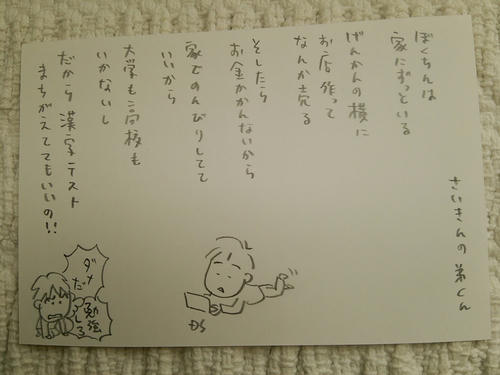 さいきんの弟くん
ぼくちんは
家にずっといる
げんかんの横に
お店作って
なんか売る
そしたら
お金かかんないから
家でのんびりしてて
いいから
大学も高校も
いかないし
だから漢字テスト
まちがえててもいいの!!
ダメだ
勉強しろ